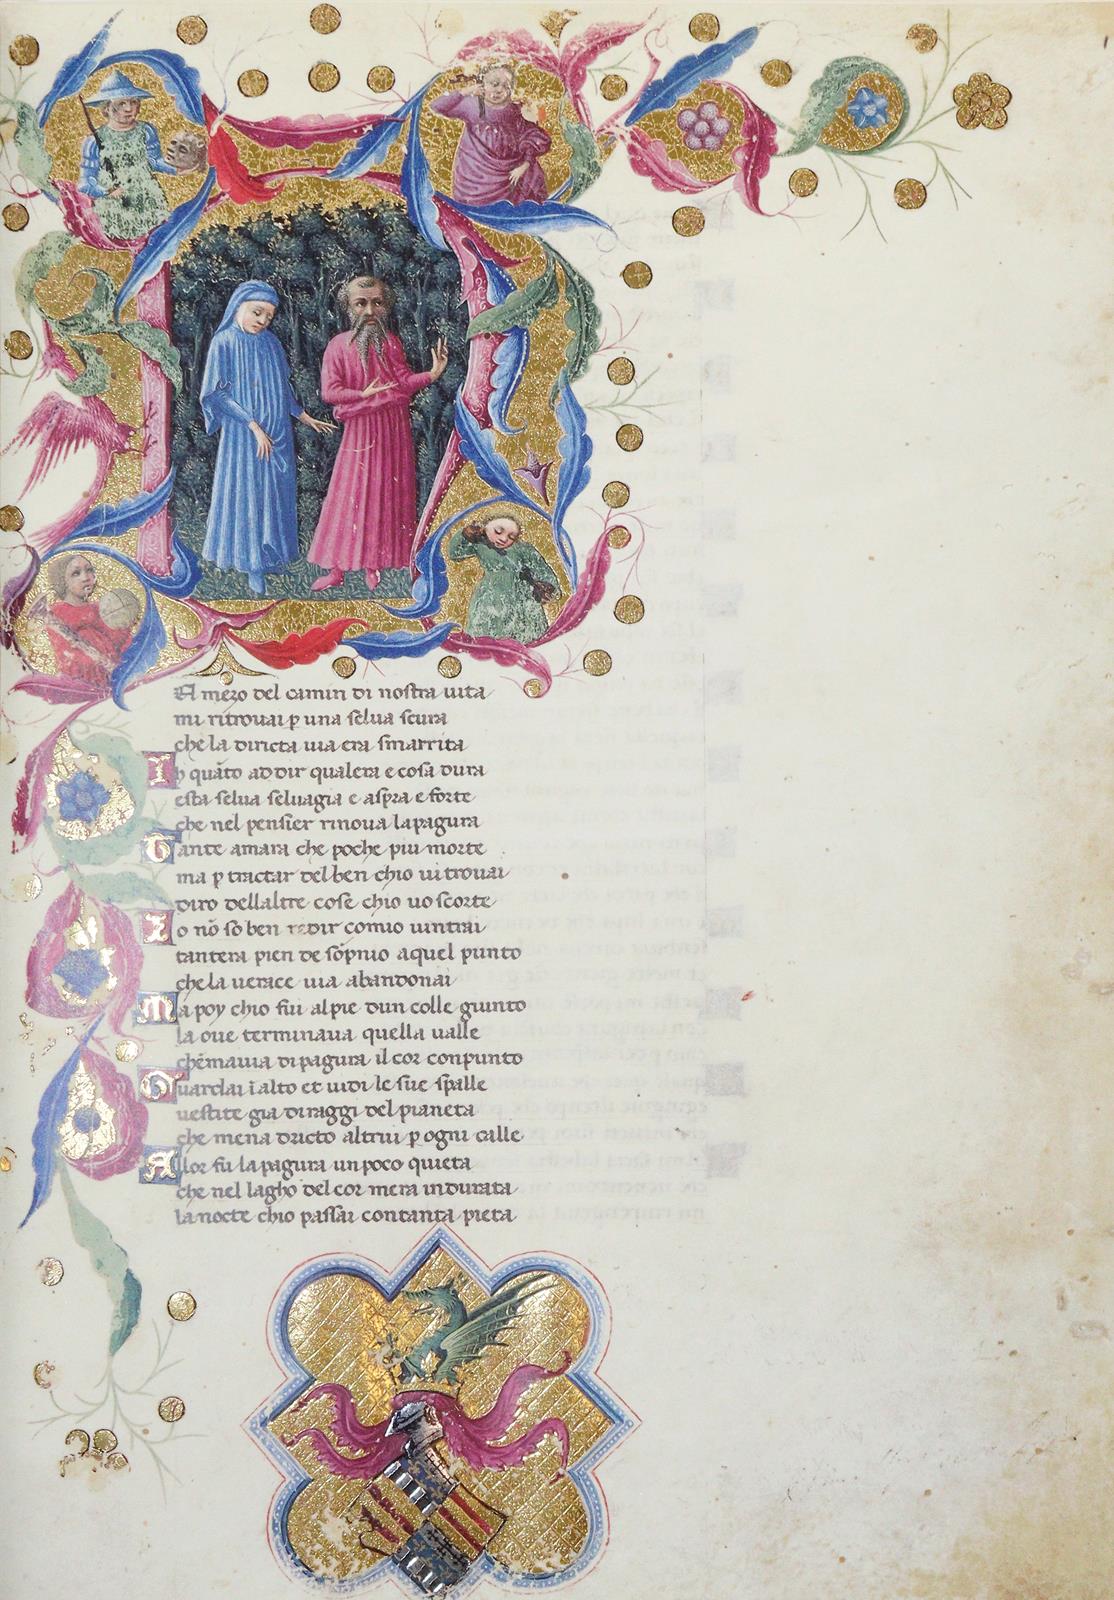 El mezo del camin di nostra uita
mi ritrouai p una selua scura
che la diricta uia era smarrita
Ih quāto ad dir qualera e cosa dura
esta selua seluagia e aspra e forte
che nel pensier rinoua la pagura
Tante amara che poche piu morte
ma p tractar del ben chio ui trouai
diro dellaltre cose chio uo scorte
Io nō so ben redir comio uintrai
tantera pien de sōpnio a quel punto
che la uerace uia abandonai
Ma poy chio fui al pie dun colle giunto
la oue terminaua quella ualle
che mauia di pagura il cor conpunto
Guardai ī alto et uidi le sue spalle
uestite gia di raggi del pianeta
che mena dricto altrui p ogni calle
Allor fu la pagura un poco quieta
che nel lagho del cor mera indurata
la nocte chio passai con tanta pieta